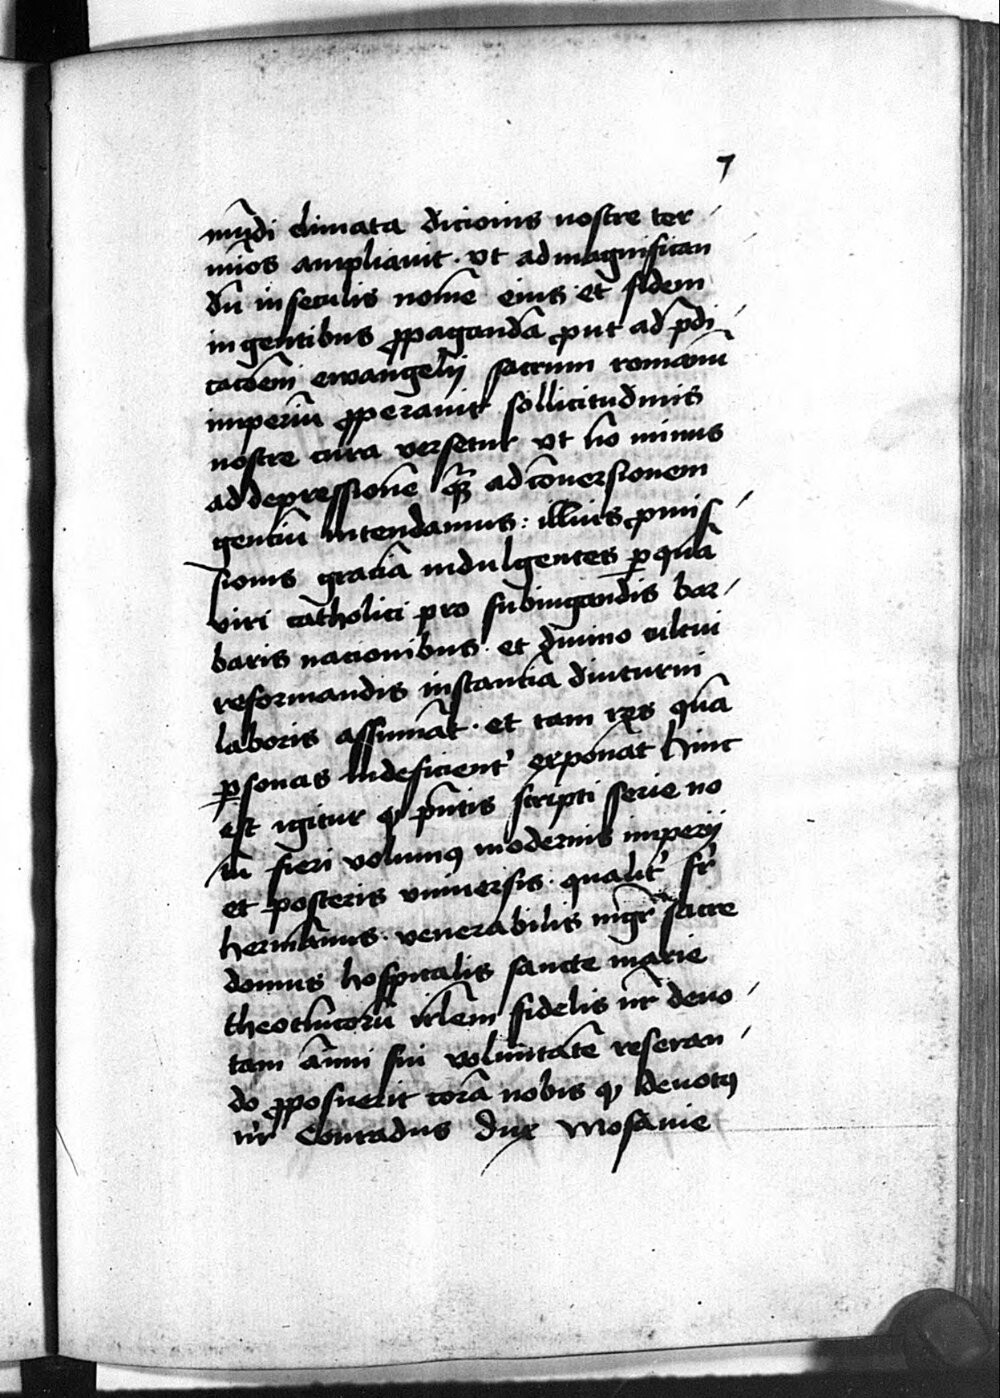 7
mūdi climata dicionis nostre ter
mīos ampliauit. vt ad magnifican
dū in seculis nomē eius et fidem
in gentibus ꝓpagandā ꝓut ad p̄di
cacōem ewangelij sacrum romanū
imperiū ꝓperauit sollicitudinis
nostre cura versetur vt nō minus
ad depressionē qȝ ad cōuersionem
gentiū intendamus: illius ꝓuis
sionis gratiā indulgentes ꝑ quā
viri catholici pro subiugandis bar
baris nacionibus. et diuino cultui
reformandis instanciā diuturni
laboris assumāt. et tam res quā
ꝑsonas indeficient' exponāt hinc
est igitur ꝙ pn̄tis scripti serie no
tū fieri volumꝰ modernis imperij
et posteris vniuersis. qualit' fr̄
hermānus. venerabilis mgr̄ sacre
domus hospitalis sancte marie
theothūicorū irlēm fidelis nr̄ deuo
tam āimi sui voluntatē reseran
do ꝓposuerit corā nobis ꝙ deuotꝰ
nr̄ Conradus dux Mosauie